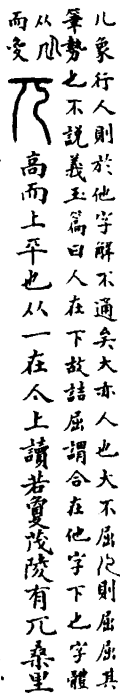 儿象行人則於他字解不通矣大亦人也大不屈儿則屈屈其
筆勢也不説義玉篇曰人在下故詰屈謂合在他字下之字體
从
而變
兀高而上平也从一在人上讀若敻茂陵有兀桑里